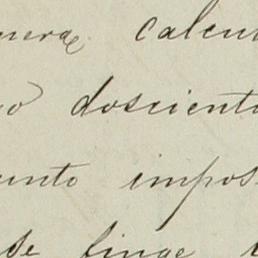 nera calcul
o doscient
unto impos
se finge